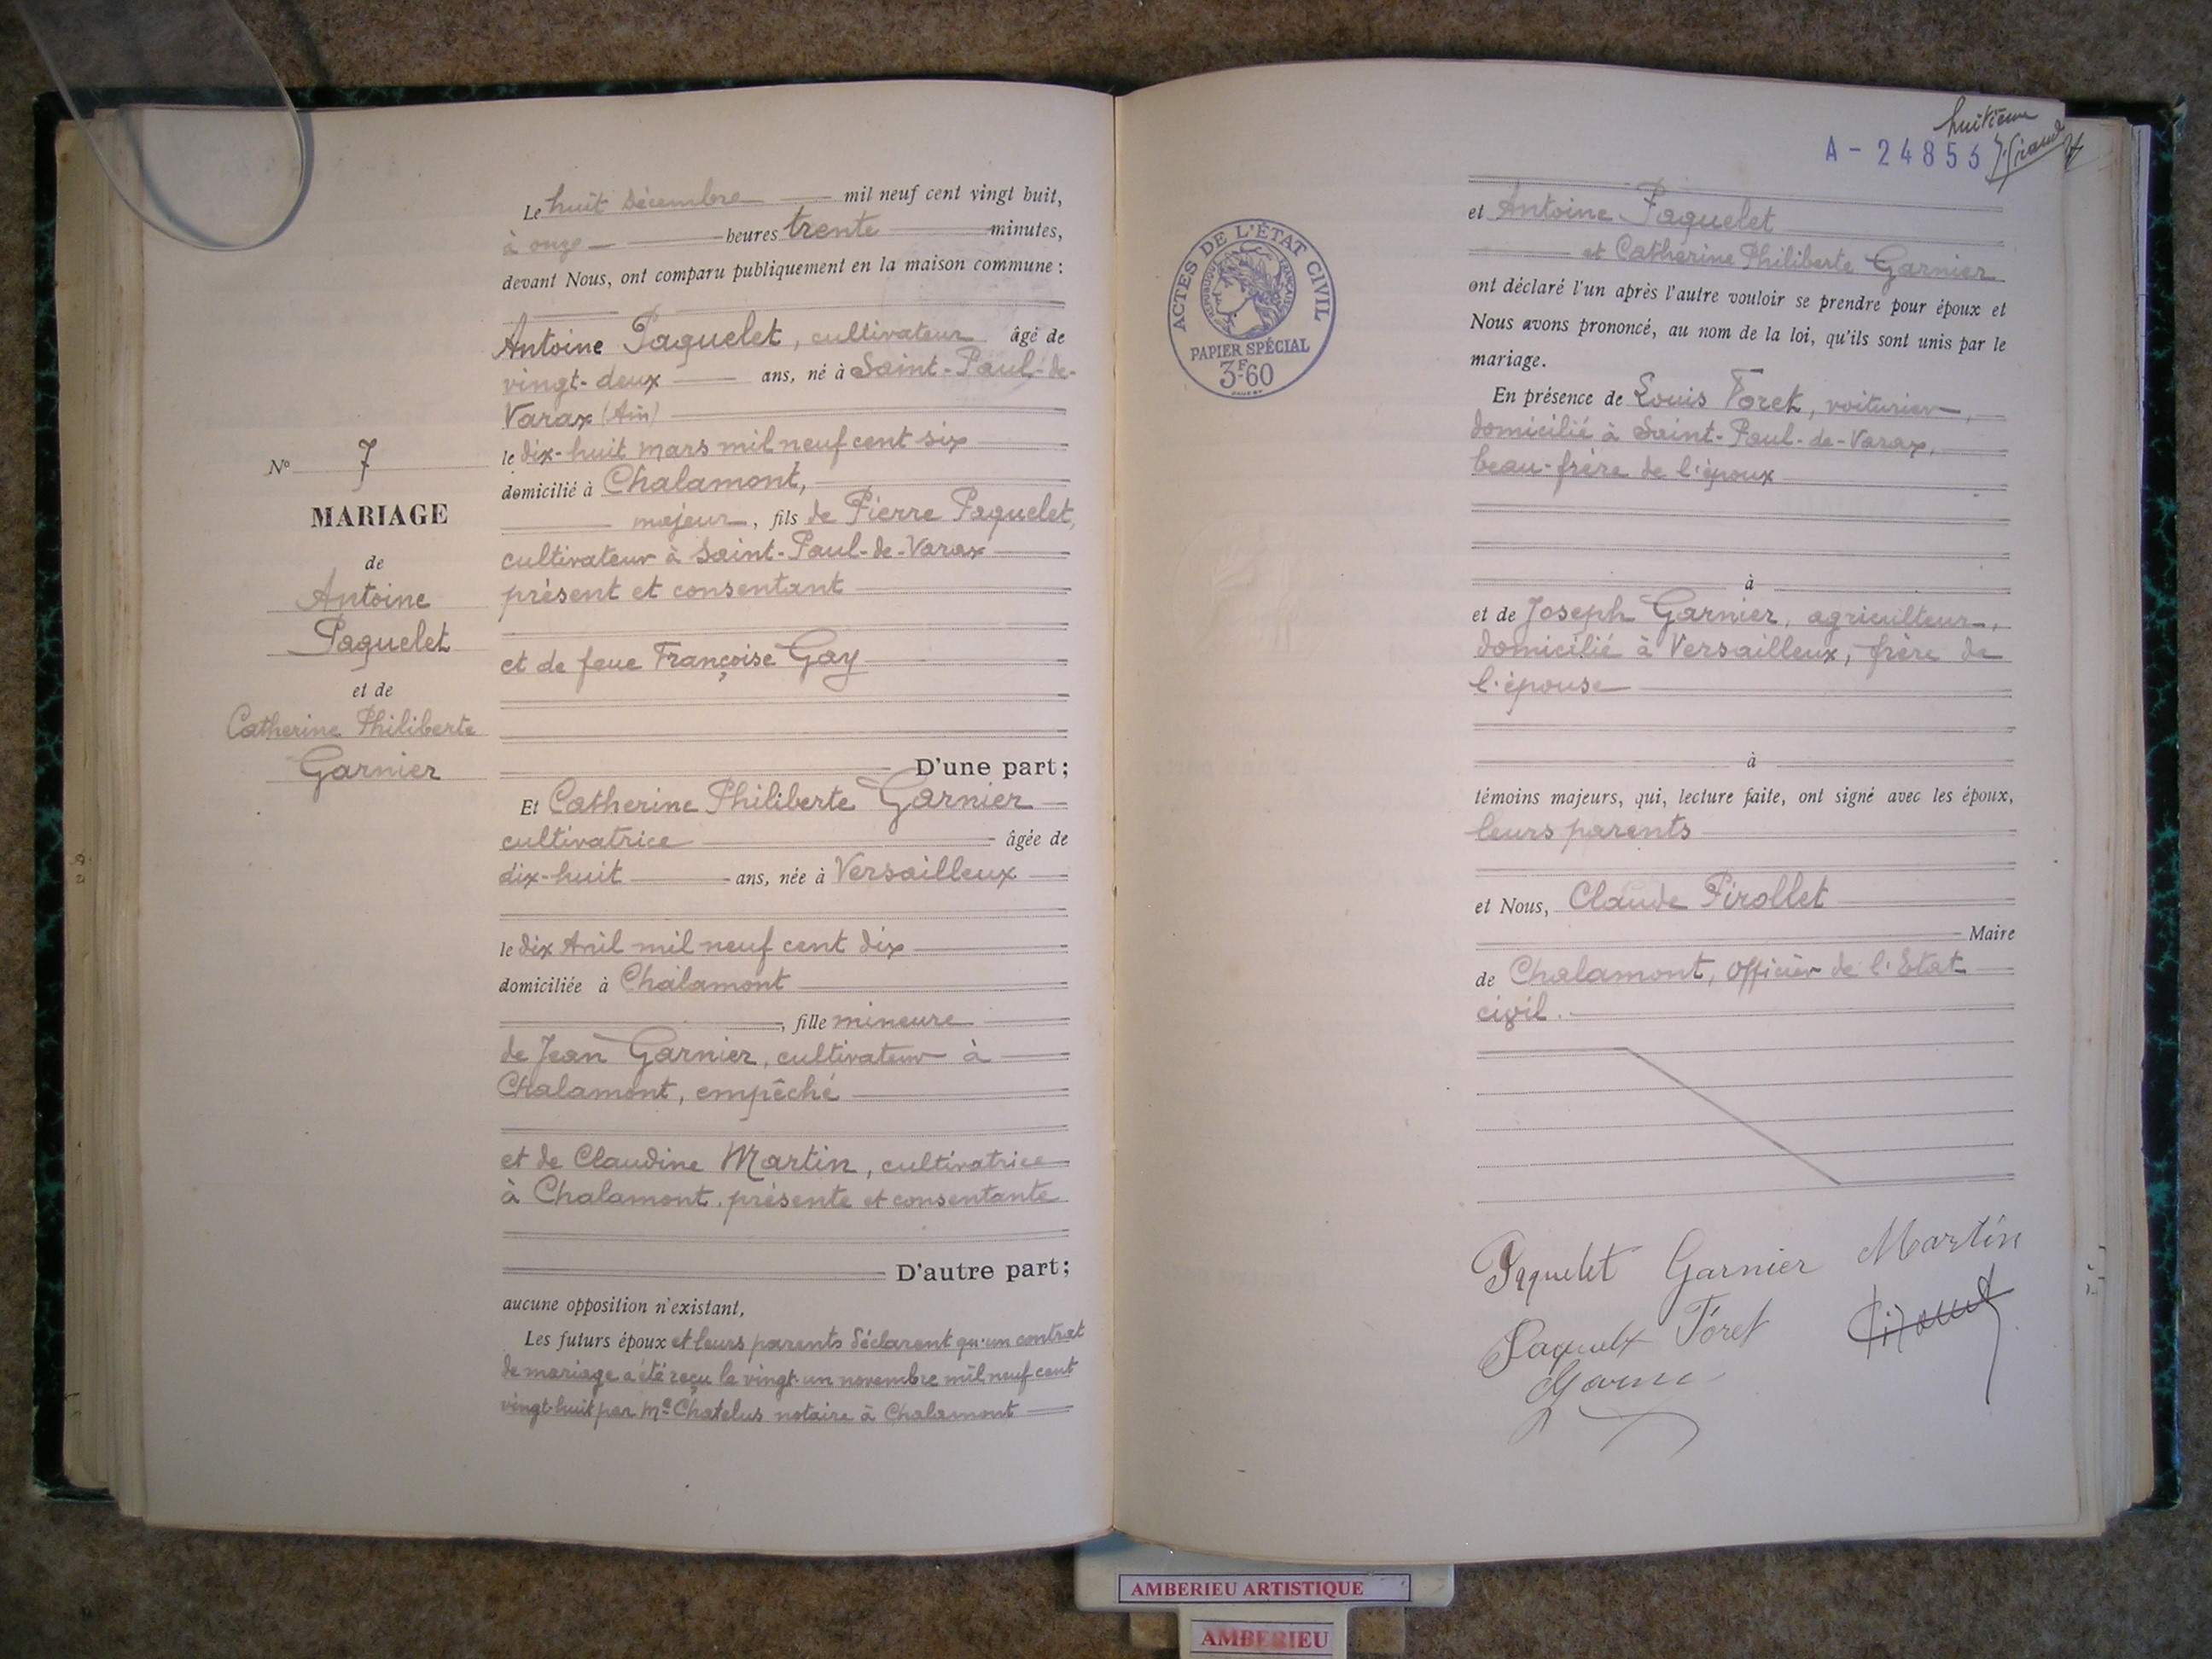 N° 7
MARIAGE
de
Antoine
Paquelet
et de
Catherine Philiberte
Garnier
Le huit Décembre mil neuf cent vingt huit,
à onze heures trente minutes,
devant Nous, ont comparu publiquement en la maison commune :
Antoine Paquelet, cultivateur âgé de
vingt-deux ans, né à Saint-Paul-de-
Varax (Ain)
le dix-huit mars mil neuf cent six
domicilié à Chalamont,
majeur, fils de Pierre Paquelet,
cultivateur à Saint-Paul-de-Varax
présent et consentant
et de feue Françoise Gay
D'une part;
Et Catherine Philiberte Garnier
cultivatrice âgée de
dix-huit ans, née à Versailleux
le dix Avril mil neuf cent dix
domiciliée à Chalamont
, fille mineure
de Jean Garnier, cultivateur à
Chalamont, empêché
et de Claudine Martin, cultivatrice
à Chalamont, présente et consentante
D'autre part;
aucune opposition n'existant,
Les futurs époux et leurs parents déclarent qu'un contrat
de mariage a été reçu le vingt-un novembre mil neuf cent
vingt-huit par Me Chatelus notaire à Chalamont
huitième
A - 24853
ACTES DE L'ÉTAT CIVIL
RÉPUBLIQUE FRANÇAISE
PAPIER SPÉCIAL
3F60
et Antoine Paquelet
et Catherine Philiberte Garnier
ont déclaré l'un après l'autre vouloir se prendre pour époux et
Nous avons prononcé, au nom de la loi, qu'ils sont unis par le
mariage.
En présence de Louis Foret, voiturier,
domicilié à Saint-Paul-de-Varax,
beau-frère de l'époux
à
et de Joseph Garnier, agriculteur,
domicilié à Versailleux, frère de
l'épouse
à
témoins majeurs, qui, lecture faite, ont signé avec les époux,
leurs parents
et Nous, Claude Pirollet
Maire
de Chalamont, officier de l'Etat
civil.
Paquelet Garnier Martin
Paquelet Foret
AMBERIEU ARTISTIQUE
AMBERIEU